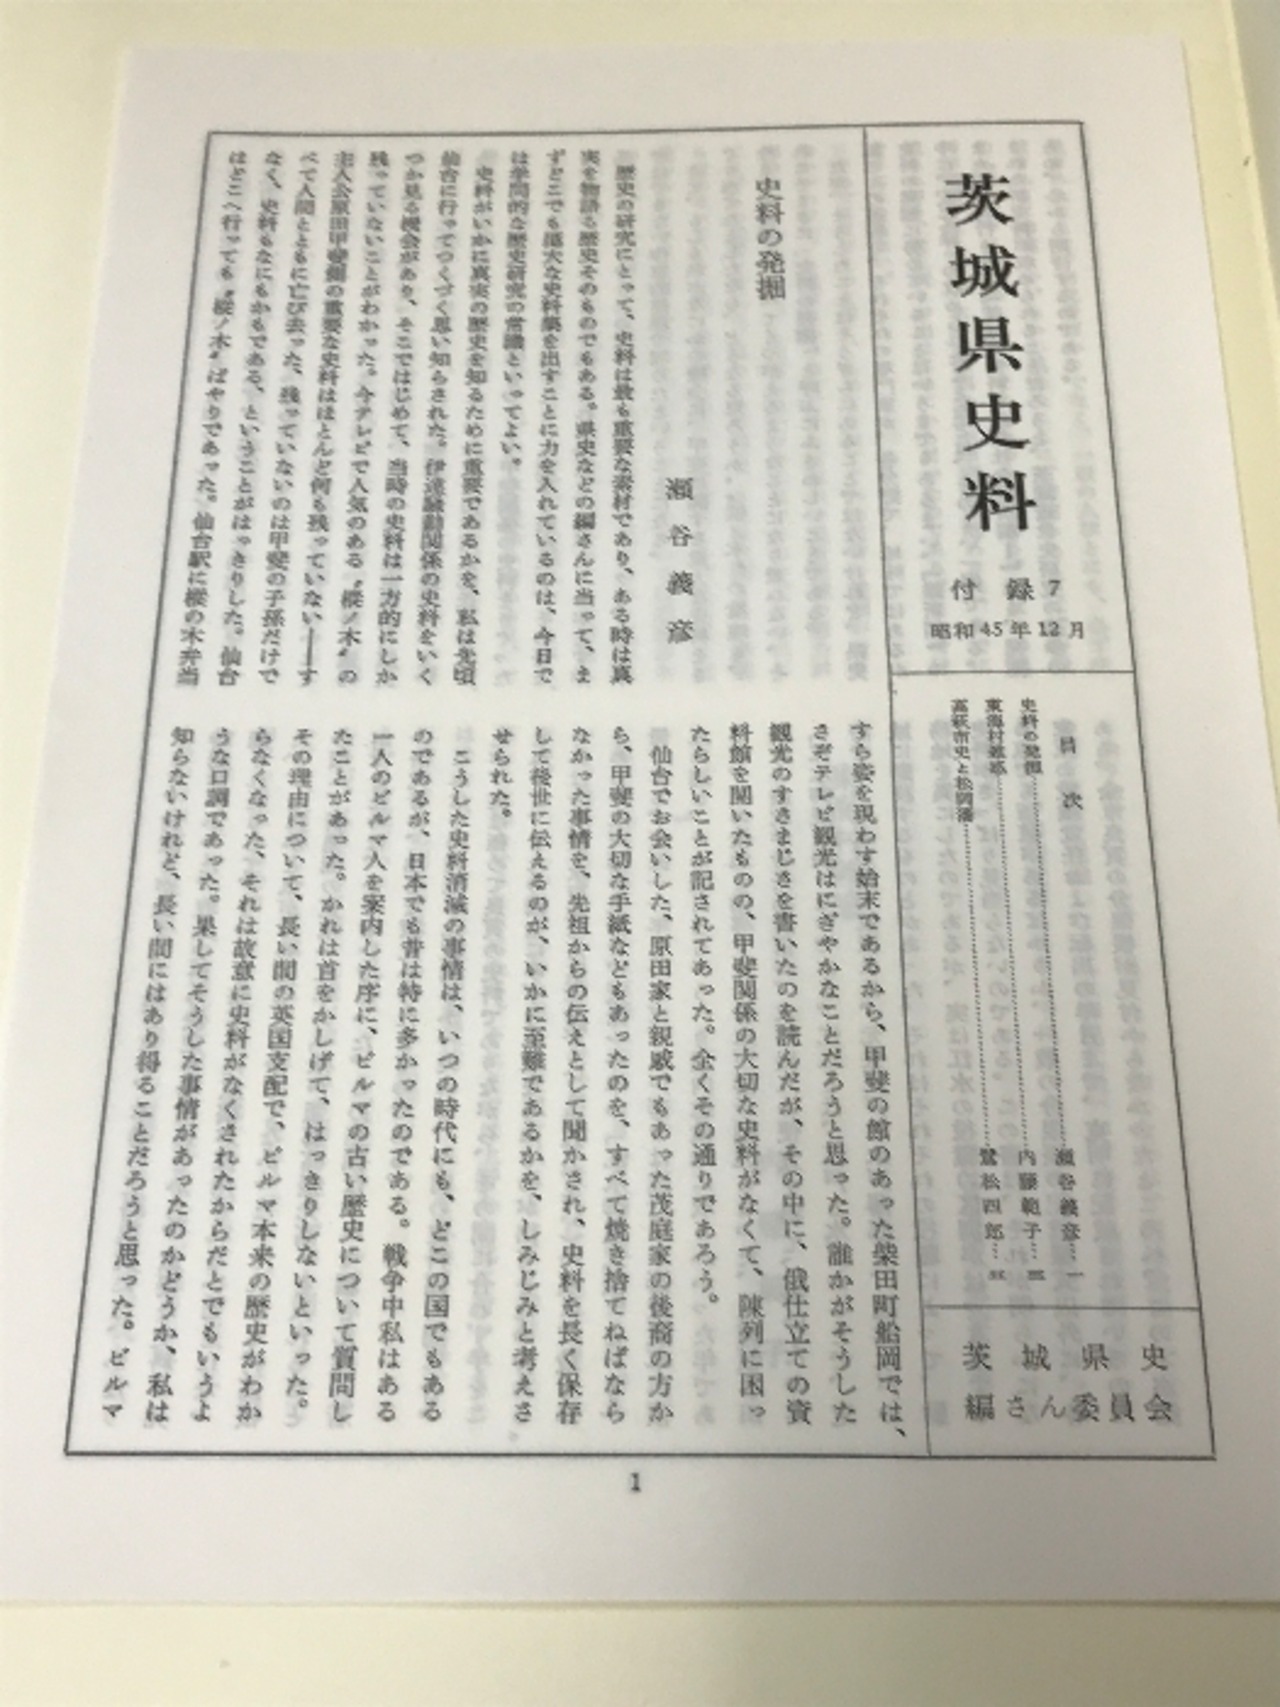 茨城県史料
付録7
昭和45年12月
目次
史料の発掘……瀬谷義彦…一
東海村雑感……内藤範子…三
高萩市史と松岡藩……鷺松四郎…五
茨城県史
編さん委員会
史料の発掘
瀬谷義彦
歴史の研究にとって、史料は最も重要な素材であり、ある時は真
実を物語る歴史そのものでもある。県史などの編さんに当って、ま
ずどこでも厖大な史料集を出すことに力を入れているのは、今日で
は学問的な歴史研究の常識といってよい。
史料がいかに真実の歴史を知るために重要であるかを、私は先頃
仙台に行ってつくづく思い知らされた。伊達騒動関係の史料をいく
つか見る機会があり、そこではじめて、当時の史料は一方的にしか
残っていないことがわかった。今テレビで人気のある〝樅ノ木〟の
主人公原田甲斐側の重要な史料はほとんど何も残っていない――す
べて人間とともに亡び去った、残っていないのは甲斐の子孫だけで
なく、史料もなにもかもである、ということがはっきりした。仙台
はどこへ行っても〝樅ノ木〟ばやりであった。仙台駅に樅の木弁当
すら姿を現わす始末であるから、甲斐の館のあった柴田町船岡では、
さぞテレビ観光はにぎやかなことだろうと思った。誰かがそうした
観光のすさまじさを書いたのを読んだが、その中に、俄仕立ての資
料館を開いたものの、甲斐関係の大切な史料がなくて、陳列に困っ
たらしいことが記されてあった。全くその通りであろう。
仙台でお会いした、原田家と親戚でもあった茂庭家の後裔の方か
ら、甲斐の大切な手紙などもあったのを、すべて焼き捨てねばなら
なかった事情を、先祖からの伝えとして聞かされ、史料を長く保存
して後世に伝えるのが、いかに至難であるかを、しみじみと考えさ
せられた。
こうした史料消滅の事情は、いつの時代にも、どこの国でもある
のであるが、日本でも昔は特に多かったのである。戦争中私はある
一人のビルマ人を案内した序に、ビルマの古い歴史について質問し
たことがあった。かれは首をかしげて、はっきりしないといった。
その理由について、長い間の英国支配で、ビルマ本来の歴史がわか
らなくなった、それは故意に史料がなくされたからだとでもいうよ
うな口調であった。果してそうした事情があったのかどうか、私は
知らないけれど、長い間にはあり得ることだろうと思った。ビルマ
1